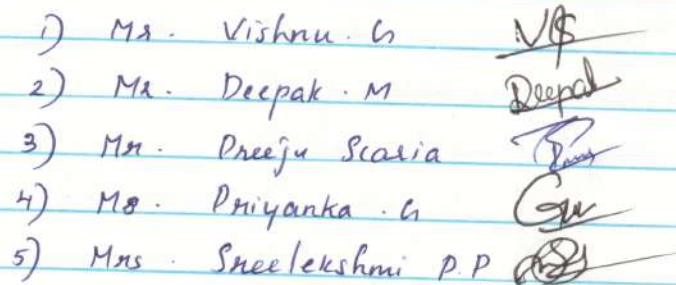 1) Mr. Vishnu. G
2) Mr. Deepak. M Deepak
3) Mr. Preeju Scaria
4) Ms. Priyanka. G
5) Mrs. Sreelekshmi P.P